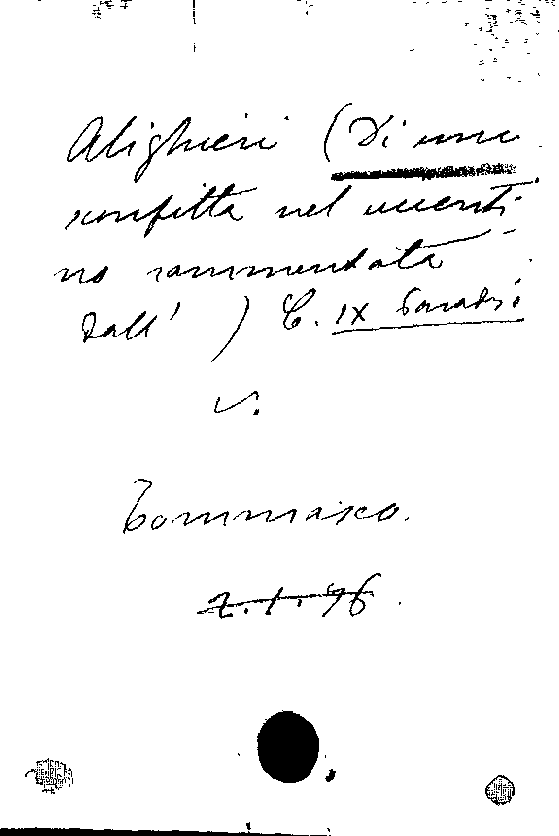 Alighieri (Di una
sconfitta nel vicenti
no rammentata
dall' ) C. IX Paradisi
v.
Tommaseo.
2.1.96.